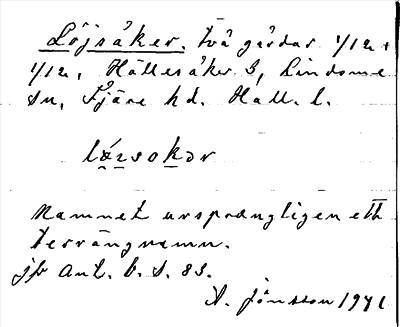 Löjsåker. två gårdar 1/12 +
1/12, Hällesåker 3, Lindome
sn, Fjäre hd. Hall. l.
lɑ́ɪsokər
Namnet ursprungligen ett
terrängnamn.
jfr Ant. b. s. 83.
A. Jönsson 1941